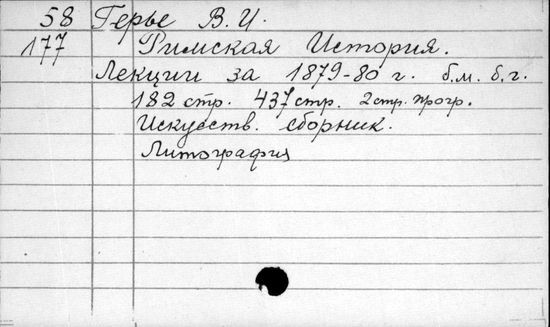 58 Герье В. И.
177 Римская История.
Лекции за 1879-80 г. б.м. б.г.
182 стр. 437 стр. 2 стр. прогр.
Искусств. сборник.
Литография